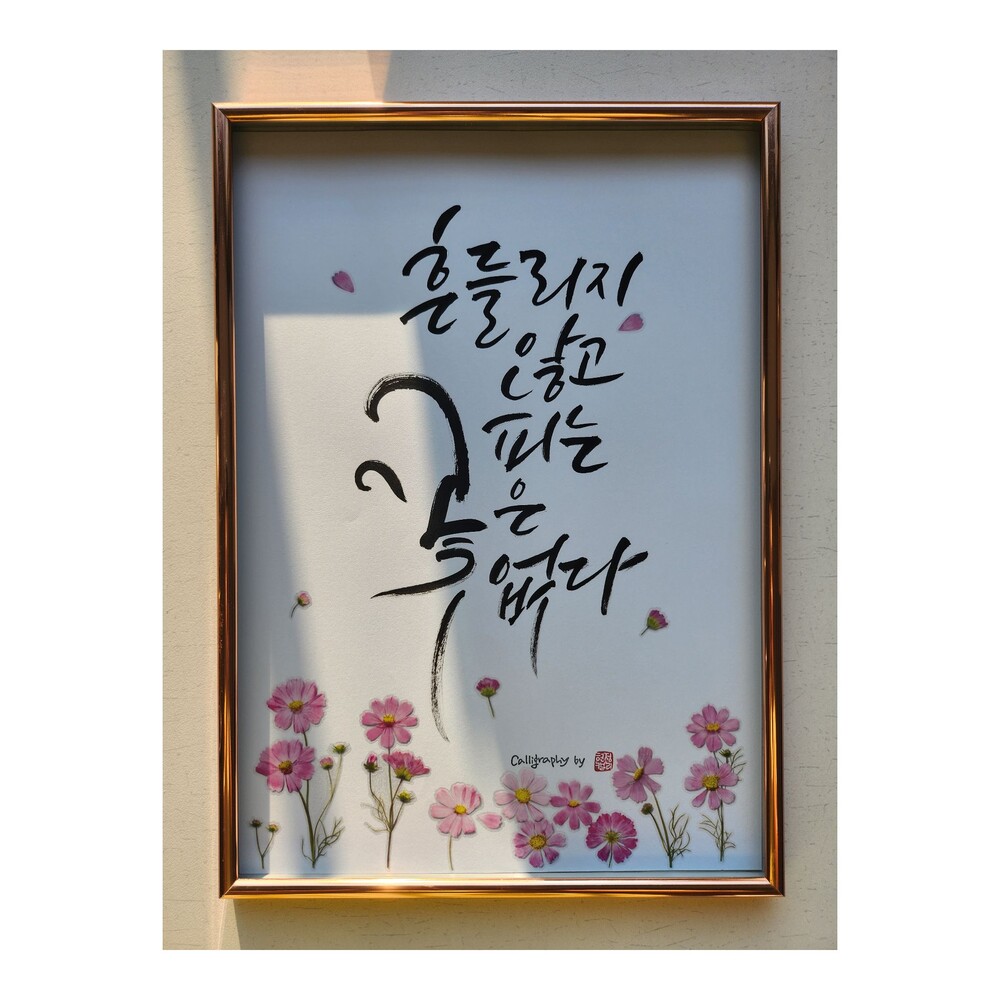 흔들리지
않고
피는
꽃은
없다
Calligraphy by